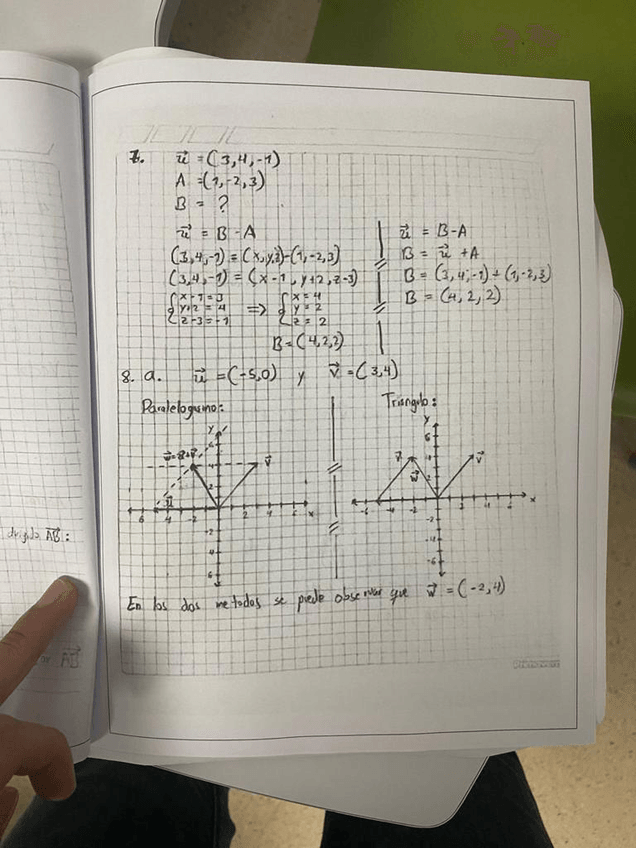 7. u⃗ = (3,4,-1)
A = (1,-2,3)
B = ?
u⃗ = B - A
(3,4,-1) = (x,y,z)-(1,-2,3)
(3,4,-1) = (x-1, y+2, z-3)
{ x-1=3
y+2=4
z-3=-1
⇒ { x=4
y=2
z=2
B=(4,2,2)
u⃗ = B-A
B = u⃗ + A
B = (3,4,-1)+(1,-2,3)
B = (4,2,2)
8. a. u⃗ = (-5,0) y v⃗ = (3,4)
Paralelogramo:
y
6
4
2
w⃗=u⃗+v⃗
v⃗
u⃗
6 -4 -2 2 4 6 x
-2
-4
6
Triangulo:
y
6
4
2
v⃗
w⃗
v⃗
-6 -4 -2 2 4 6 x
-2
-4
-6
En los dos metodos se puede observar que w⃗ = (-2,4)
AB⃗:
AB⃗